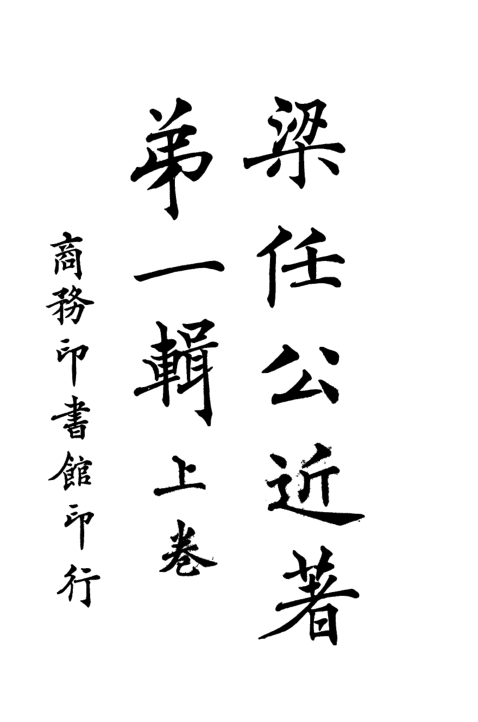 梁任公近著
弟一輯上卷
商務印書館印行